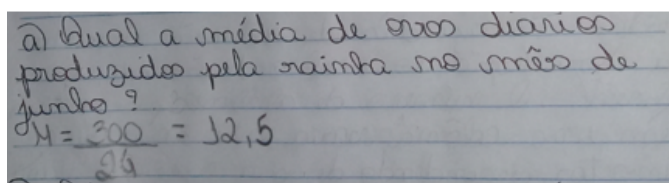 a) Qual a média de ovos diarios
produzidos pela rainha no mês de
junho?
M = 300 = 12,5
24